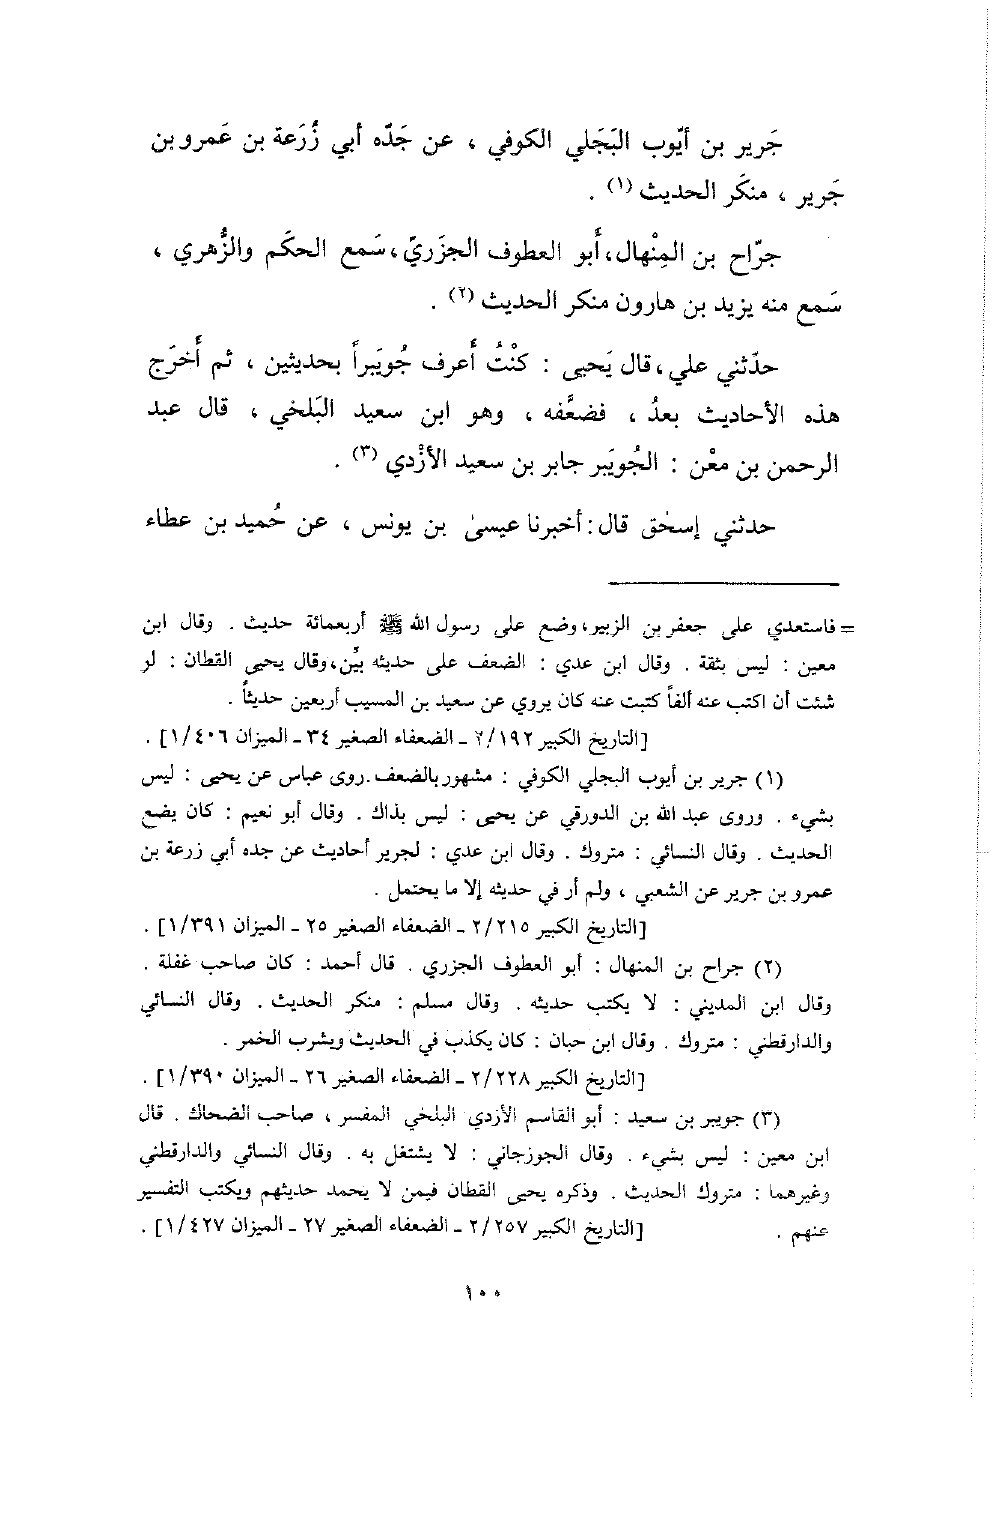 جَرير بن أيّوب البَجَلي الكوفي ، عن جَدّه أبي زُرَعة بن عَمرو بن
جَرير ، منكَر الحديث (١) .
جرّاح بن المِنْهال، أَبو العطوف الجزَريّ، سَمع الحكَم والزُّهري ،
سَمع منه يزيد بن هارون منكر الحديث (٢) .
حدّثني علي، قال يَحيى : كنْتُ أَعرف جُويَبراً بحديثين ، ثم أَخرَج
هذه الأحاديث بعدُ ، فضعَّفه ، وهو ابن سعيد البَلخي ، قال عبد
الرحمن بن معْن : الجُويَبر جابر بن سعيد الأزْدي (٣) .
حدثني إسحٰق قال : أخبرنا عيسىٰ بن يونس ، عن حُميد بن عطاء
= فاستعدي على جعفر بن الزبير، وضع على رسول الله ﷺ أربعمائة حديث . وقال ابن
معين : ليس بثقة . وقال ابن عدي : الضعف على حديثه بيِّن، وقال يحيى القطان : لو
شئت أن اكتب عنه ألفاً كتبت عنه كان يروي عن سعيد بن المسيب أربعين حديثاً .
[التاريخ الكبير ٢/١٩٢ ـ الضعفاء الصغير ٣٤ ـ الميزان ١/٤٠٦] .
(١) جرير بن أيوب البجلي الكوفي : مشهور بالضعف. روى عباس عن يحيى : ليس
بشيء . وروى عبد الله بن الدورقي عن يحيى : ليس بذاك . وقال أبو نعيم : كان يضع
الحديث . وقال النسائي : متروك . وقال ابن عدي : لجرير أحاديث عن جده أبي زرعة بن
عمرو بن جرير عن الشعبي ، ولم أر في حديثه إلا ما يحتمل .
[التاريخ الكبير ٢/٢١٥ ـ الضعفاء الصغير ٢٥ ـ الميزان ١/٣٩١] .
(٢) جراح بن المنهال : أبو العطوف الجزري . قال أحمد : كان صاحب غفلة .
وقال ابن المديني : لا يكتب حديثه . وقال مسلم : منكر الحديث . وقال النسائي
والدارقطني : متروك . وقال ابن حبان : كان يكذب في الحديث ويشرب الخمر .
[التاريخ الكبير ٢/٢٢٨ ـ الضعفاء الصغير ٢٦ ـ الميزان ١/٣٩٠] .
(٣) جويبر بن سعيد : أبو القاسم الأزدي البلخي المفسر ، صاحب الضحاك . قال
ابن معين : ليس بشيء . وقال الجوزجاني : لا يشتغل به . وقال النسائي والدارقطني
وغيرهما : متروك الحديث . وذكره يحيى القطان فيمن لا يحمد حديثهم ويكتب التفسير
عنهم . [التاريخ الكبير ٢/٢٥٧ ـ الضعفاء الصغير ٢٧ ـ الميزان ١/٤٢٧] .
١٠٠